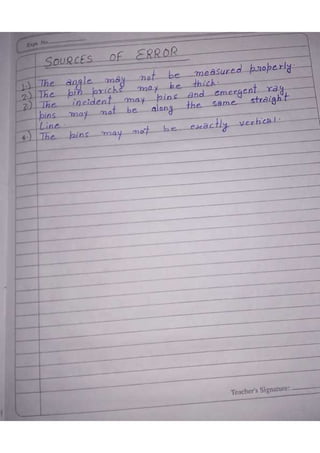 Expt. No.
SOURCES OF ERROR
1.) The angle may not be measured properly.
2) The pin pricks may be thick.
3) The incident may pins and emergent ray
pins may not be along the same straight
Line.
4.) The pins may not be exactly vertical.
Teacher's Signature: